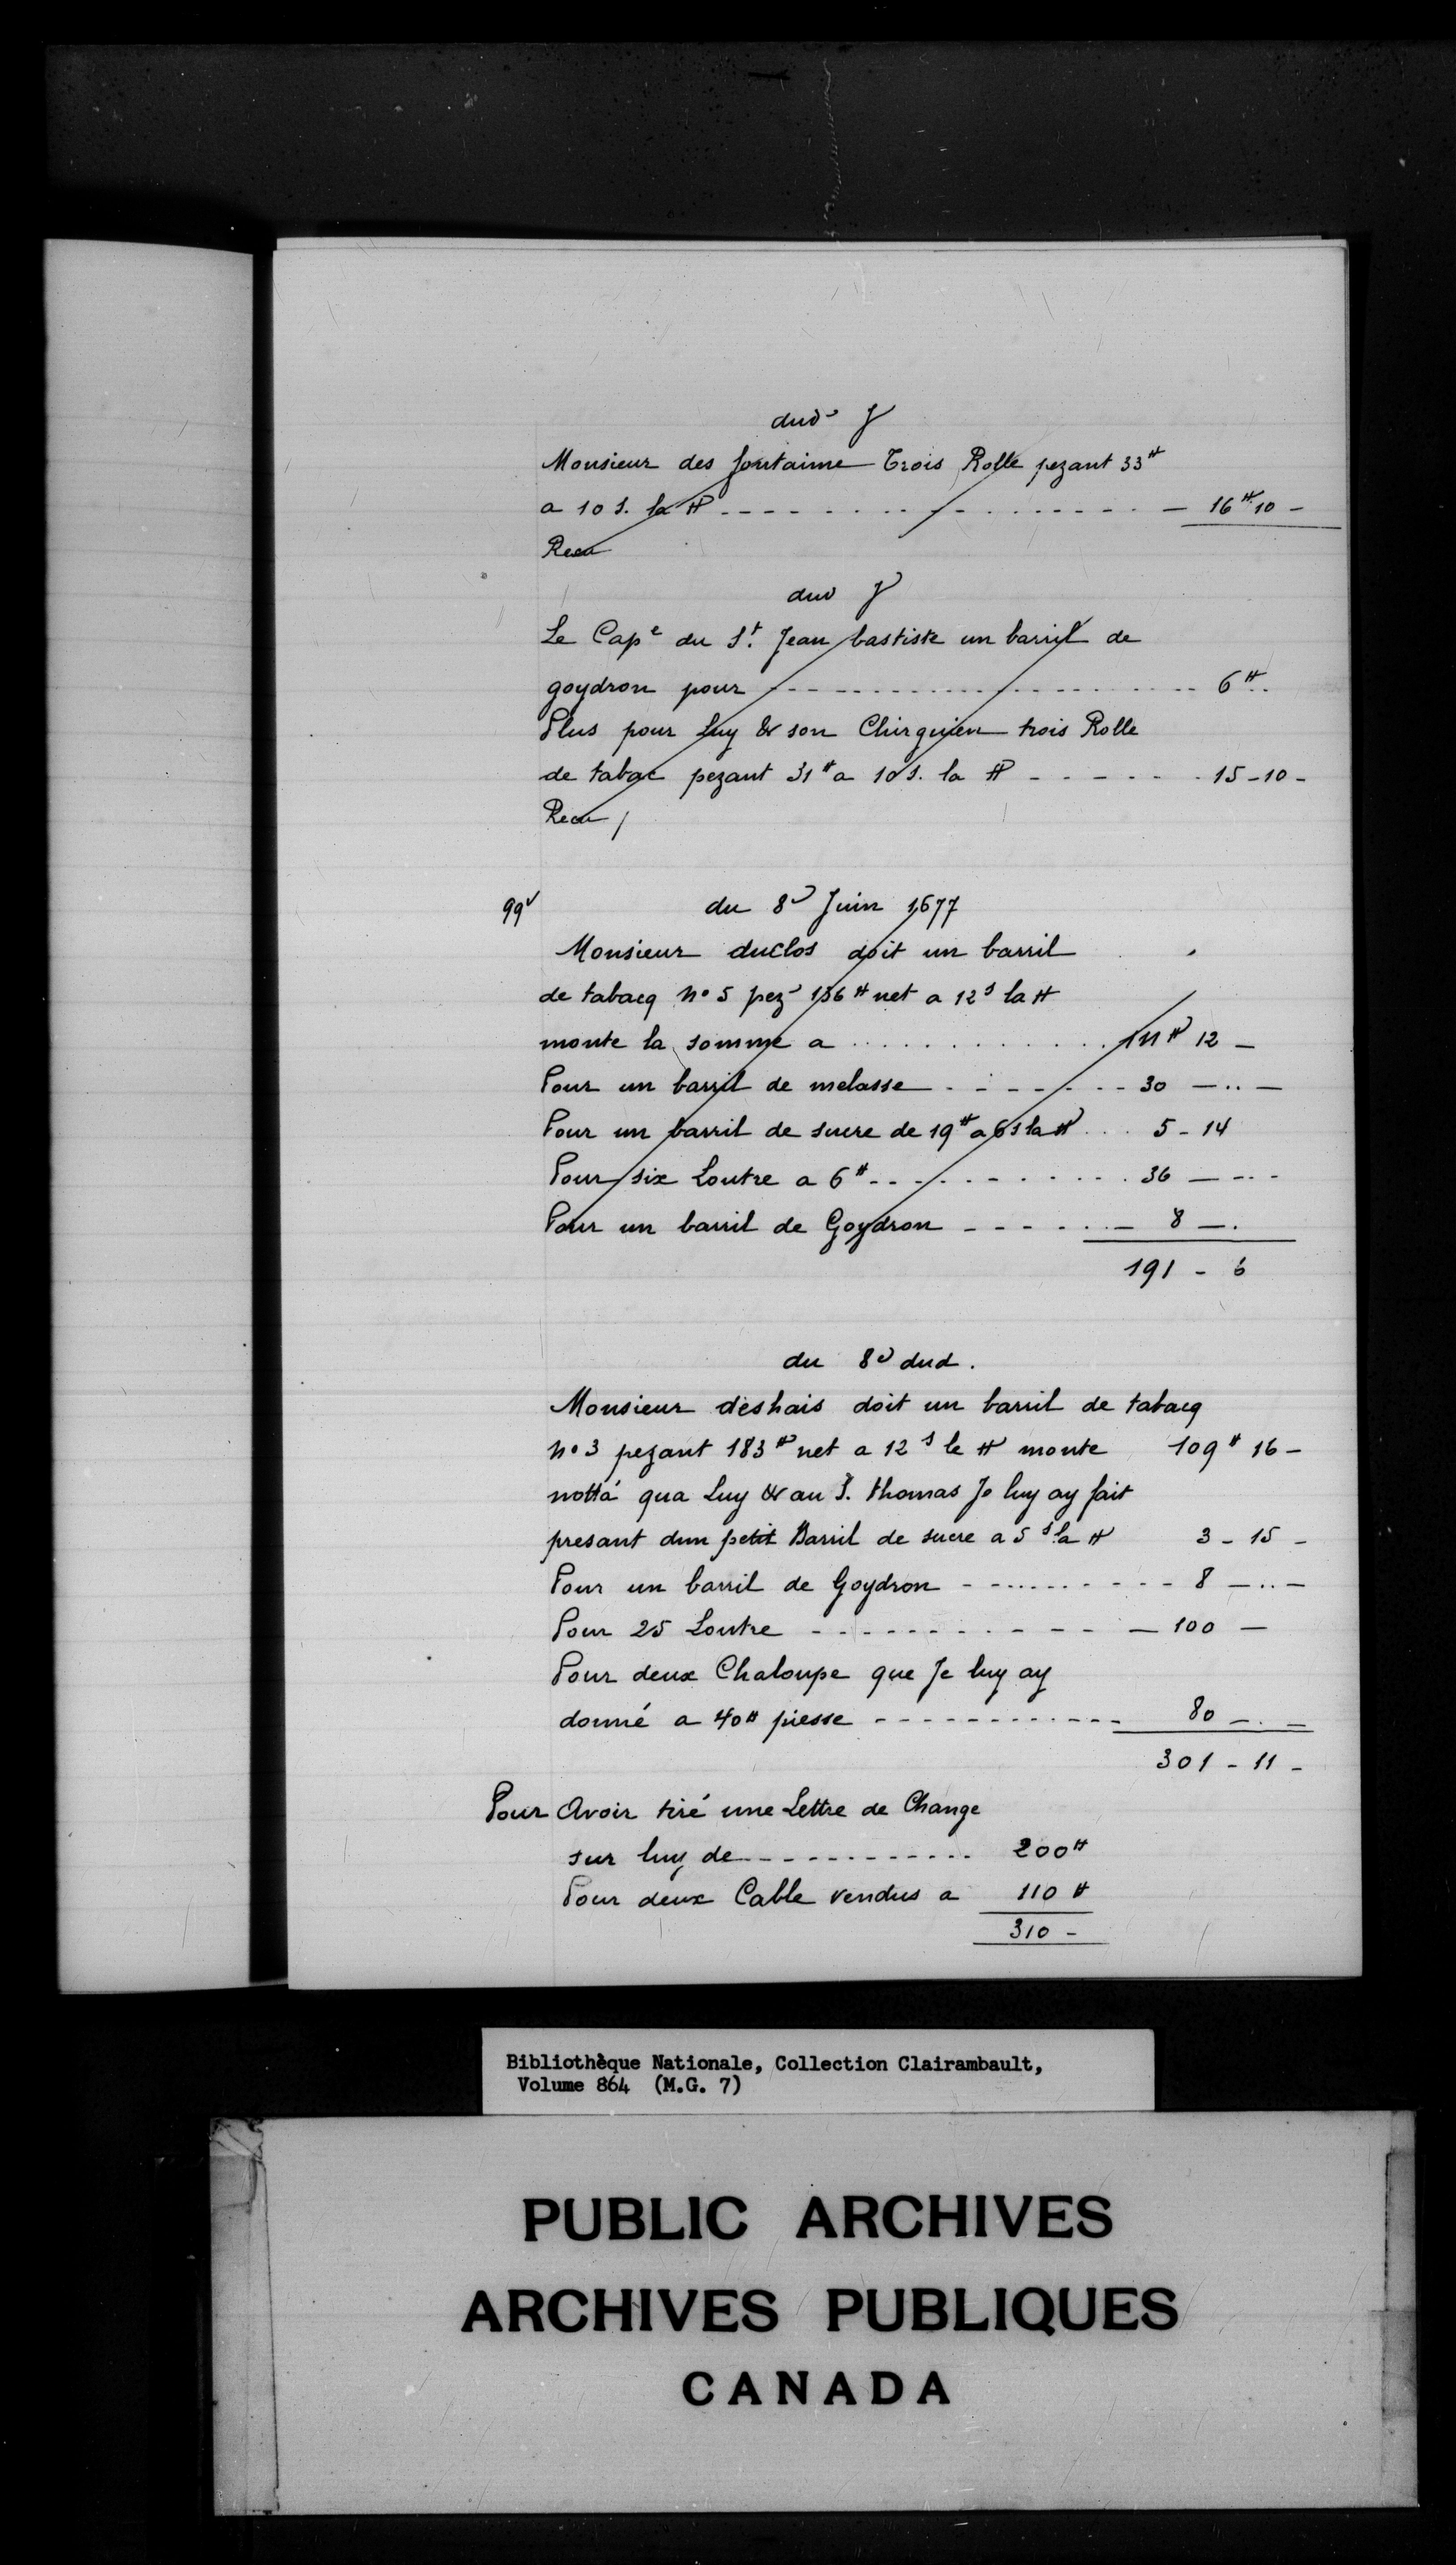 dud J
Monsieur des fontaine Trois Rolle pezant 33#
a 10 s. la # - - - - - - - 16# 10 -
Recu
dud J
Le Cape du St. Jean bastiste un barril de
goydron pour - - - - - - - 6# ..
Plus pour Luy & son Chirguien trois Rolle
de tabac pezant 31# a 10 s. la # - - - - - 15 - 10 -
Recu /
99v du 8e Juin 1677
Monsieur duclos doit un barril
de tabacq No 5 pezt 186# net a 12s la #
monte la somme a . . . . . . . 111# 12 -
Pour un barril de melasse - - - - - 30 - .. -
Pour un barril de sucre de 19# a 6s la # . . . 5 - 14
Pour six Loutre a 6# - - - - - - - 36 - - - -
Pour un barril de Goydron - - - - - - 8 - .
191 - 6
du 8e dud.
Monsieur deshais doit un barril de tabacq
No 3 pezant 183# net a 12s le # monte 109# 16 -
notta qua Luy & au S. thomas Je luy ay fait
presant dun petit Barril de sucre a 5s la # 3 - 15 -
Pour un barril de Goydron - - - - - - - 8 - .. -
Pour 25 Loutre - - - - - - - - 100 -
Pour deux Chaloupe que Je luy ay
donné a 40# piesse - - - - - - - - 80 - . -
301 - 11 -
Pour Avoir tiré une Lettre de Change
sur luy de - - - - - - - - 200#
Pour deux Cable vendus a 110#
310 -
Bibliothèque Nationale, Collection Clairambault,
Volume 864 (M.G. 7)
PUBLIC ARCHIVES
ARCHIVES PUBLIQUES
CANADA